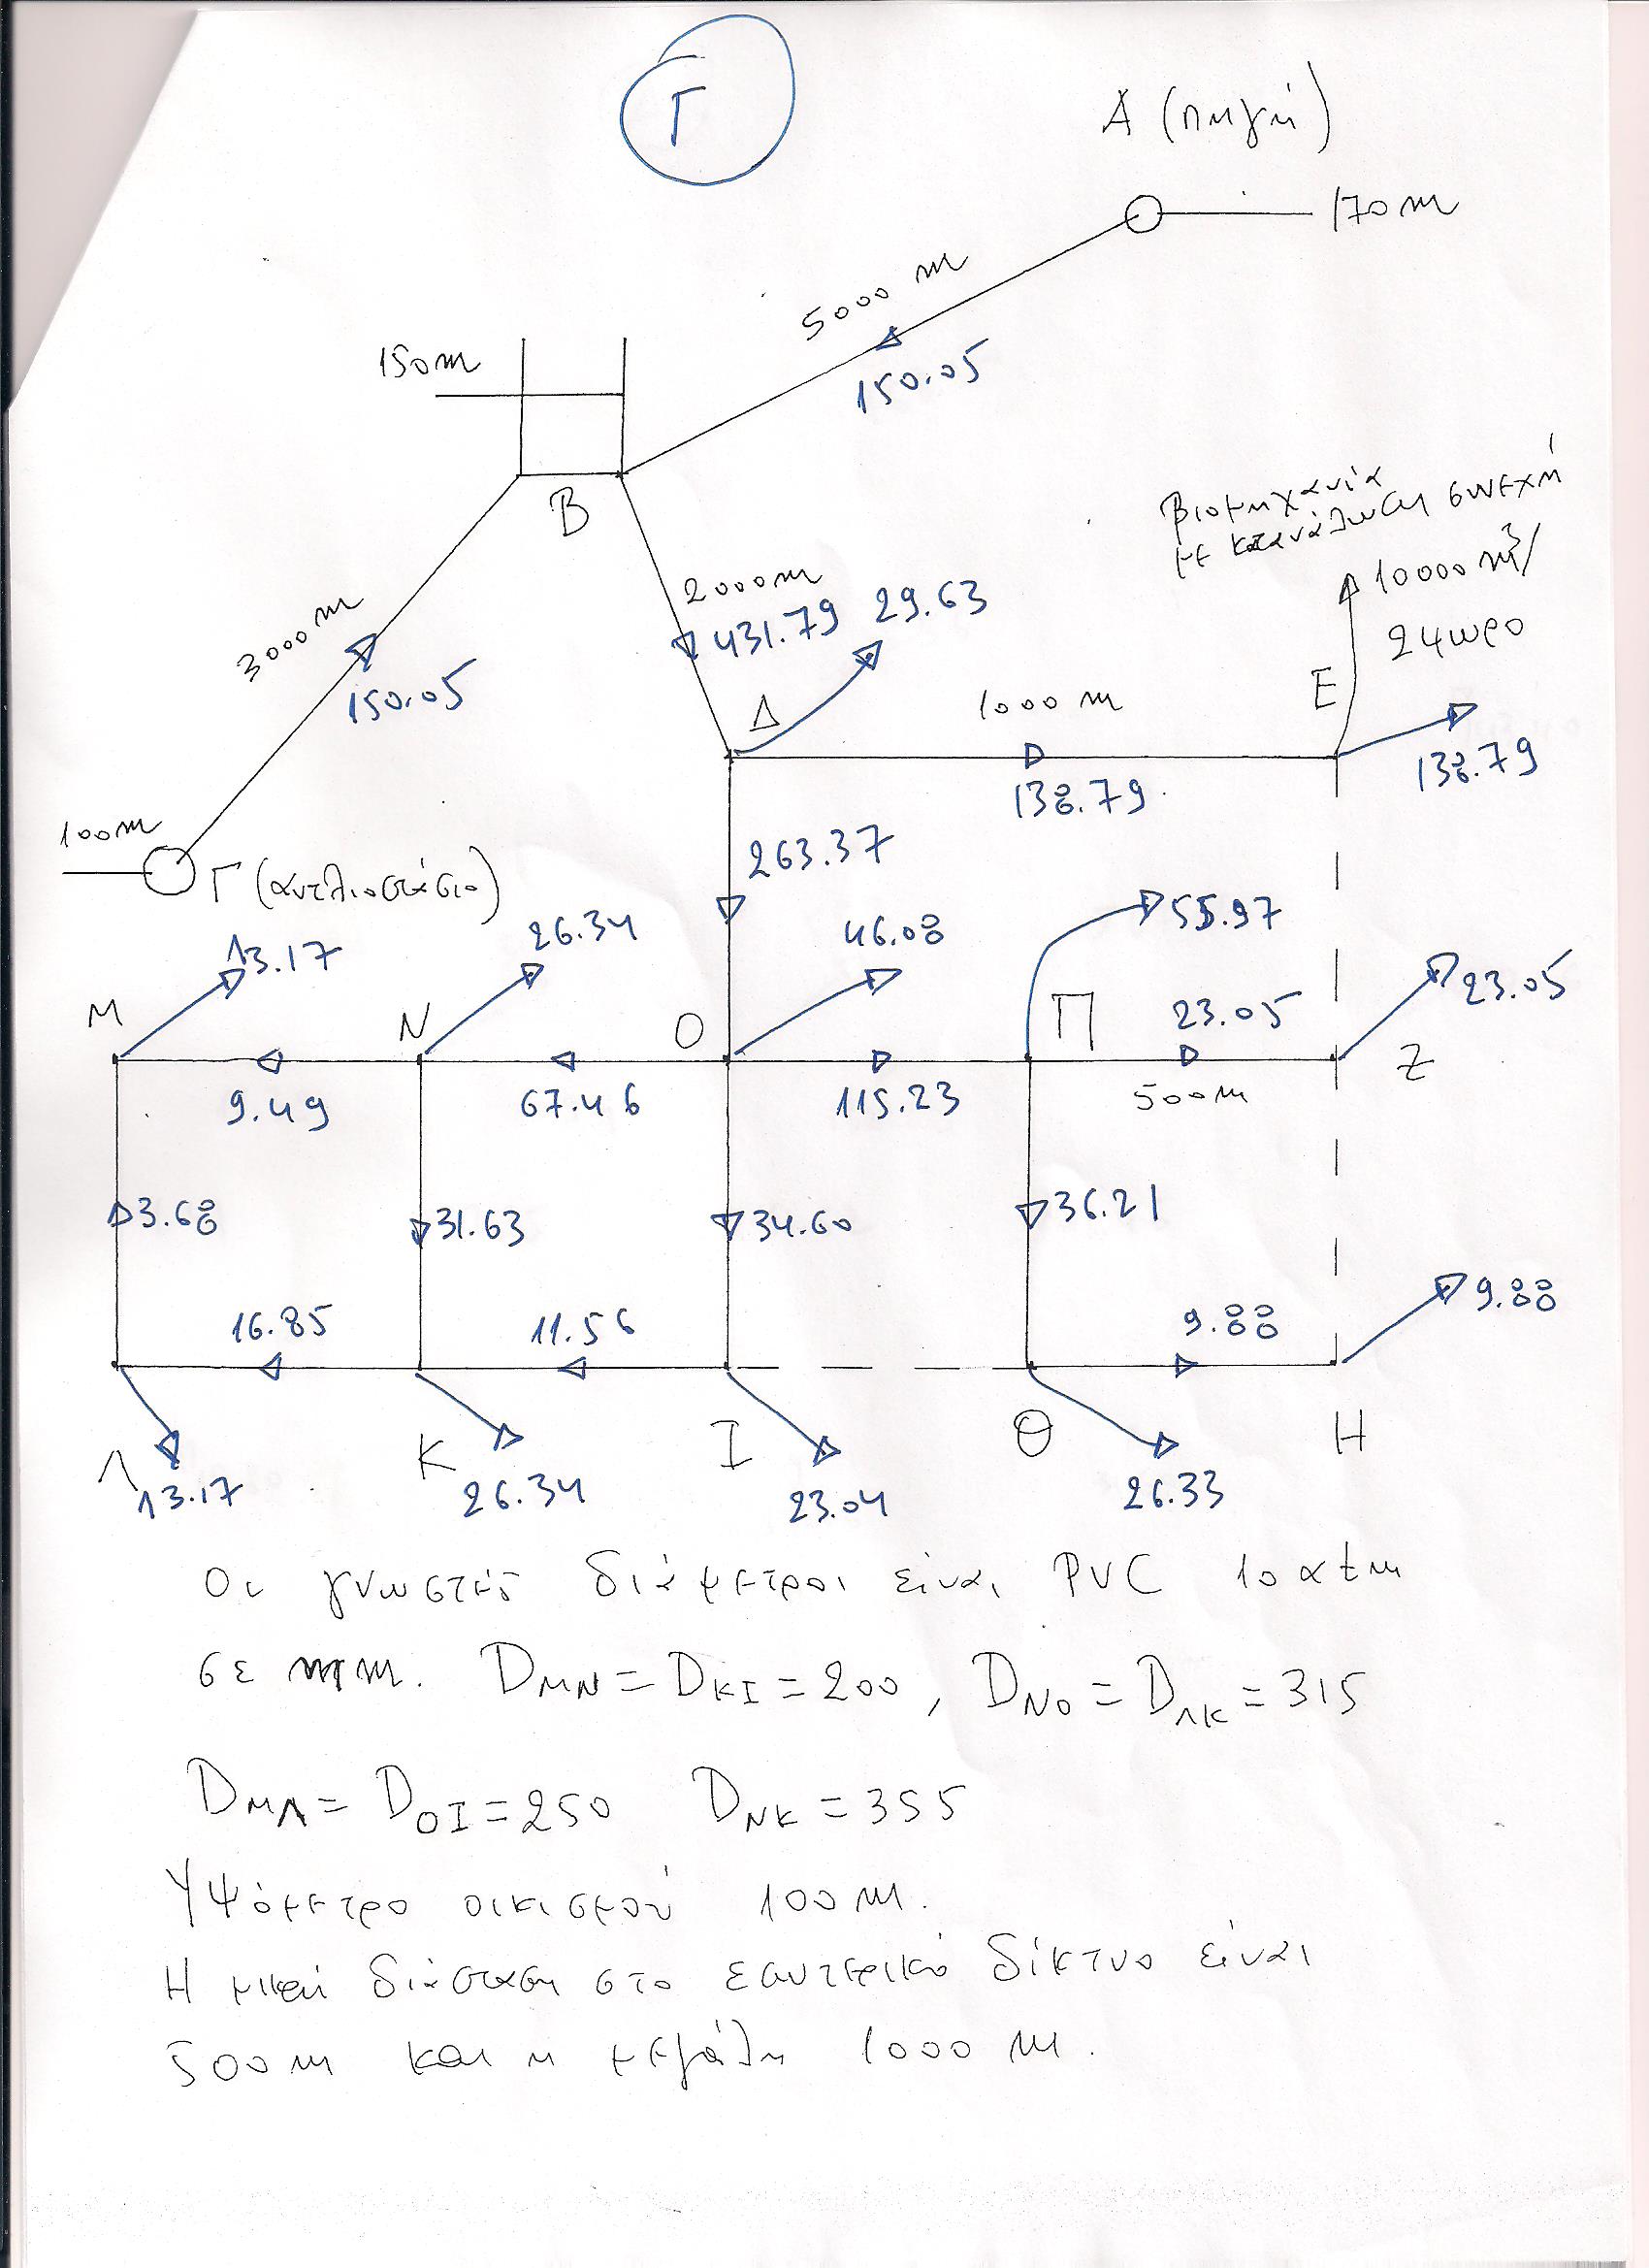 Γ
Α (πηγή)
170 m
5000 m
150.05
150m
Β
βιομηχανία
με κατανάλωση συνεχή
10000 m³/
24ωρο
2000m
431.79
29.63
3000 m
150.05
Δ
1000 m
Ε
138.79
138.79
100m
Γ (αντλιοστάσιο)
263.37
13.17
26.34
46.08
55.97
Μ
Ν
Ο
Π
23.05
23.05
Ζ
9.49
67.46
115.23
500m
3.68
31.63
34.60
36.21
16.85
11.56
9.88
9.88
Λ
Κ
Ι
Θ
Η
13.17
26.34
23.04
26.33
Οι γνωστές διάμετροι είναι PVC 10 atm
σε mm. DΜΝ = DΚΙ = 200, DΝΟ = DΛΚ = 315
DΜΛ = DΟΙ = 250 DΝΚ = 355
Υψόμετρο οικισμού 100 m.
Η μικρή διάσταση στο εσωτερικό δίκτυο είναι
500 m και η μεγάλη 1000 m.